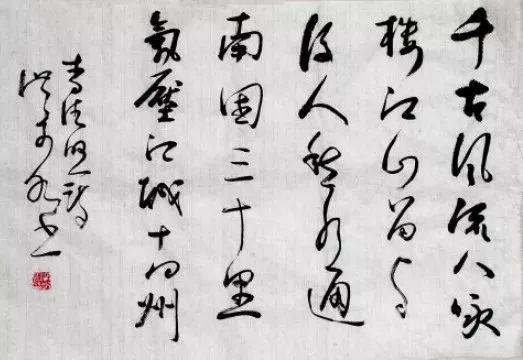 千古风流八咏
楼江山留与
后人愁水通
南国三千里
氣壓江城十四州
李清照诗
书